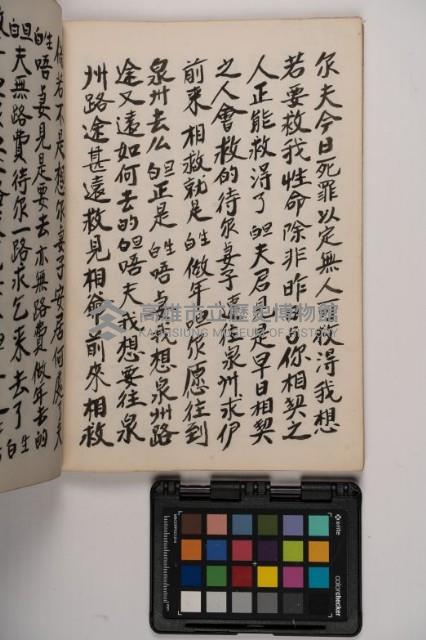 尔夫今日死罪以定無人救得我想
若要救我性命除非昨日你相契之
人正能救得了旦夫君見是早日相契
之人會救的待尔妻子速往泉州求伊
前來相救就是生做年唔尔愿往到
泉州去么旦正是生唔妻我想泉州路
途又遠如何去的旦唔夫我想要往泉
州路途甚遠救見相爺前來相救
倘若不是想尔妻子安居何處了夫
生唔妻見是要去亦無路費做年去的
旦夫無路費待尔一路求乞来去了生
高雄市立歷史博物館
KAOHSIUNG MUSEUM OF HISTORY
x-rite
colorchecker